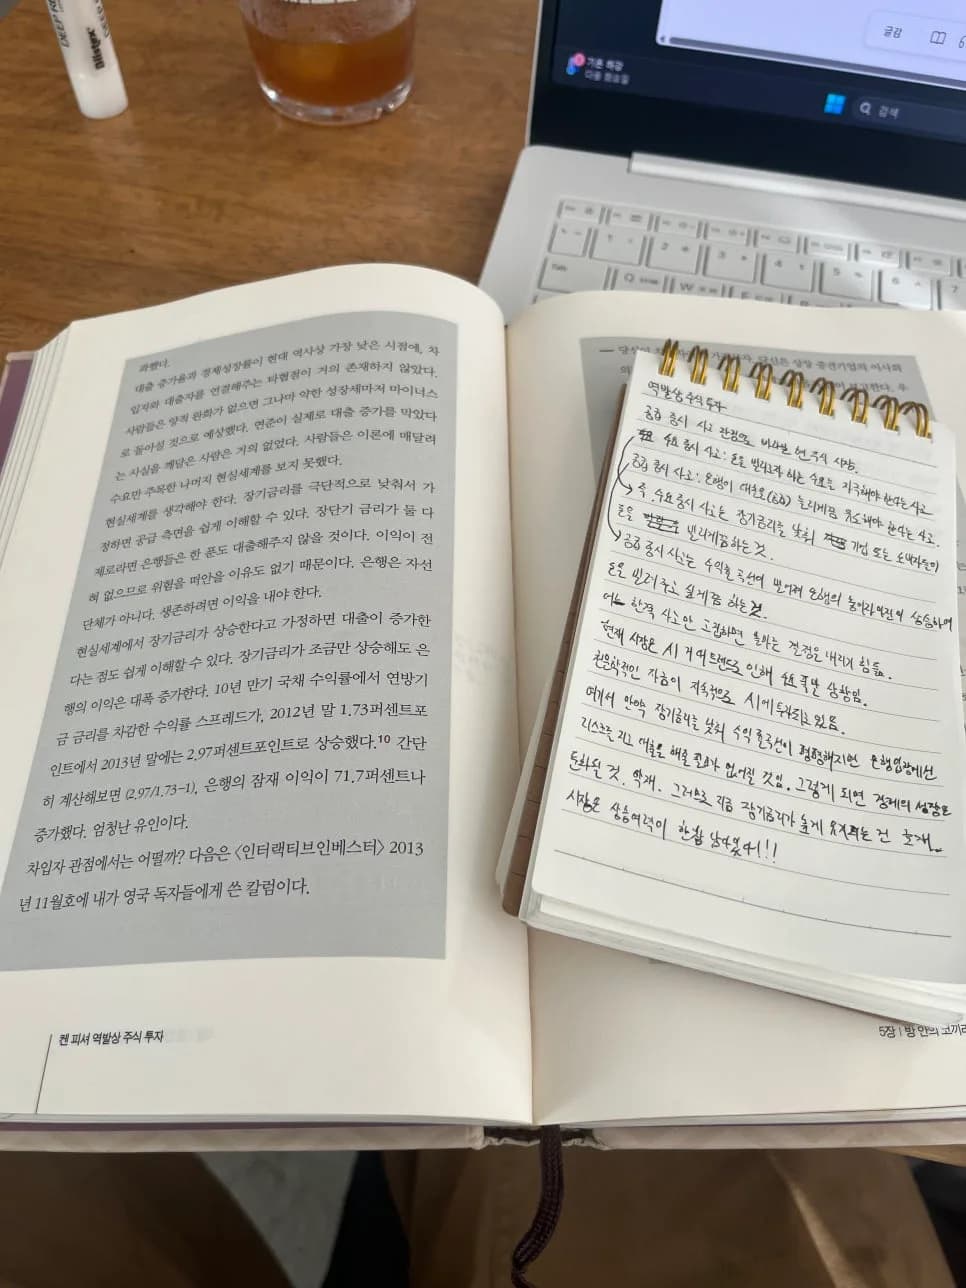 Blistex
기온 하강
다음 화요일
검색
글감
파했다.
대출 증가율과 경제성장률이 현대 역사상 가장 낮은 시점에, 차
입자와 대출자를 연결해주는 타협점이 거의 존재하지 않았다.
사람들은 양적 완화가 없으면 그나마 약한 성장세마저 마이너스
로 돌아설 것으로 예상했다. 연준이 실제로 대출 증가를 막았다
는 사실을 깨달은 사람은 거의 없었다. 사람들은 이론에 매달려
수요만 주목한 나머지 현실세계를 보지 못했다.
현실세계를 생각해야 한다. 장기금리를 극단적으로 낮춰서 가
정하면 공급 측면을 쉽게 이해할 수 있다. 장단기 금리가 둘 다
제로라면 은행들은 한 푼도 대출해주지 않을 것이다. 이익이 전
혀 없으므로 위험을 떠안을 이유도 없기 때문이다. 은행은 자선
단체가 아니다. 생존하려면 이익을 내야 한다.
현실세계에서 장기금리가 상승한다고 가정하면 대출이 증가한
다는 점도 쉽게 이해할 수 있다. 장기금리가 조금만 상승해도 은
행의 이익은 대폭 증가한다. 10년 만기 국채 수익률에서 연방기
금 금리를 차감한 수익률 스프레드가, 2012년 말 1.73퍼센트포
인트에서 2013년 말에는 2.97퍼센트포인트로 상승했다.10 간단
히 계산해보면 (2.97/1.73-1), 은행의 잠재 이익이 71.7퍼센트나
증가했다. 엄청난 유인이다.
차입자 관점에서는 어떨까? 다음은 〈인터랙티브인베스터〉 2013
년 11월호에 내가 영국 독자들에게 쓴 칼럼이다.
켄 피셔 역발상 주식 투자
역발상 주식 투자
공급 중시 사고 관점으로 바라본 현 주식 시장.
수요 중시 사고: 돈을 빌리고자 하는 수요를 자극해야 한다는 사고
공급 중시 사고: 은행이 대출(공급)을 늘리게끔 유도해야 한다는 사고.
즉, 수요 중시 사고는 장기금리를 낮춰 기업 또는 소비자들이
돈을 빌리게끔 하는 것.
공급 중시 사고는 수익률 곡선이 벌어져 은행의 순이자마진이 상승하여
돈을 빌려주고 싶게끔 하는 것.
어느 한쪽 사고만 고집하면 올바른 결정을 내리기 힘듦.
현재 시장은 AI 거대 트렌드로 인해 수요 폭발 상황임.
천문학적인 자금이 지속적으로 AI에 투자되고 있음.
여기서 만약 장기금리를 낮춰 수익률곡선이 평평해지면 은행입장에선
리스크를 지고 대출을 해줄 필요가 없어질 것임. 그렇게 되면 경제의 성장은
둔화될 것. 악재. 그러므로 지금 장기금리가 높게 유지되는 건 호재.
시장은 상승여력이 한참 남아있다!!!
5장 | 방 안의 코끼리